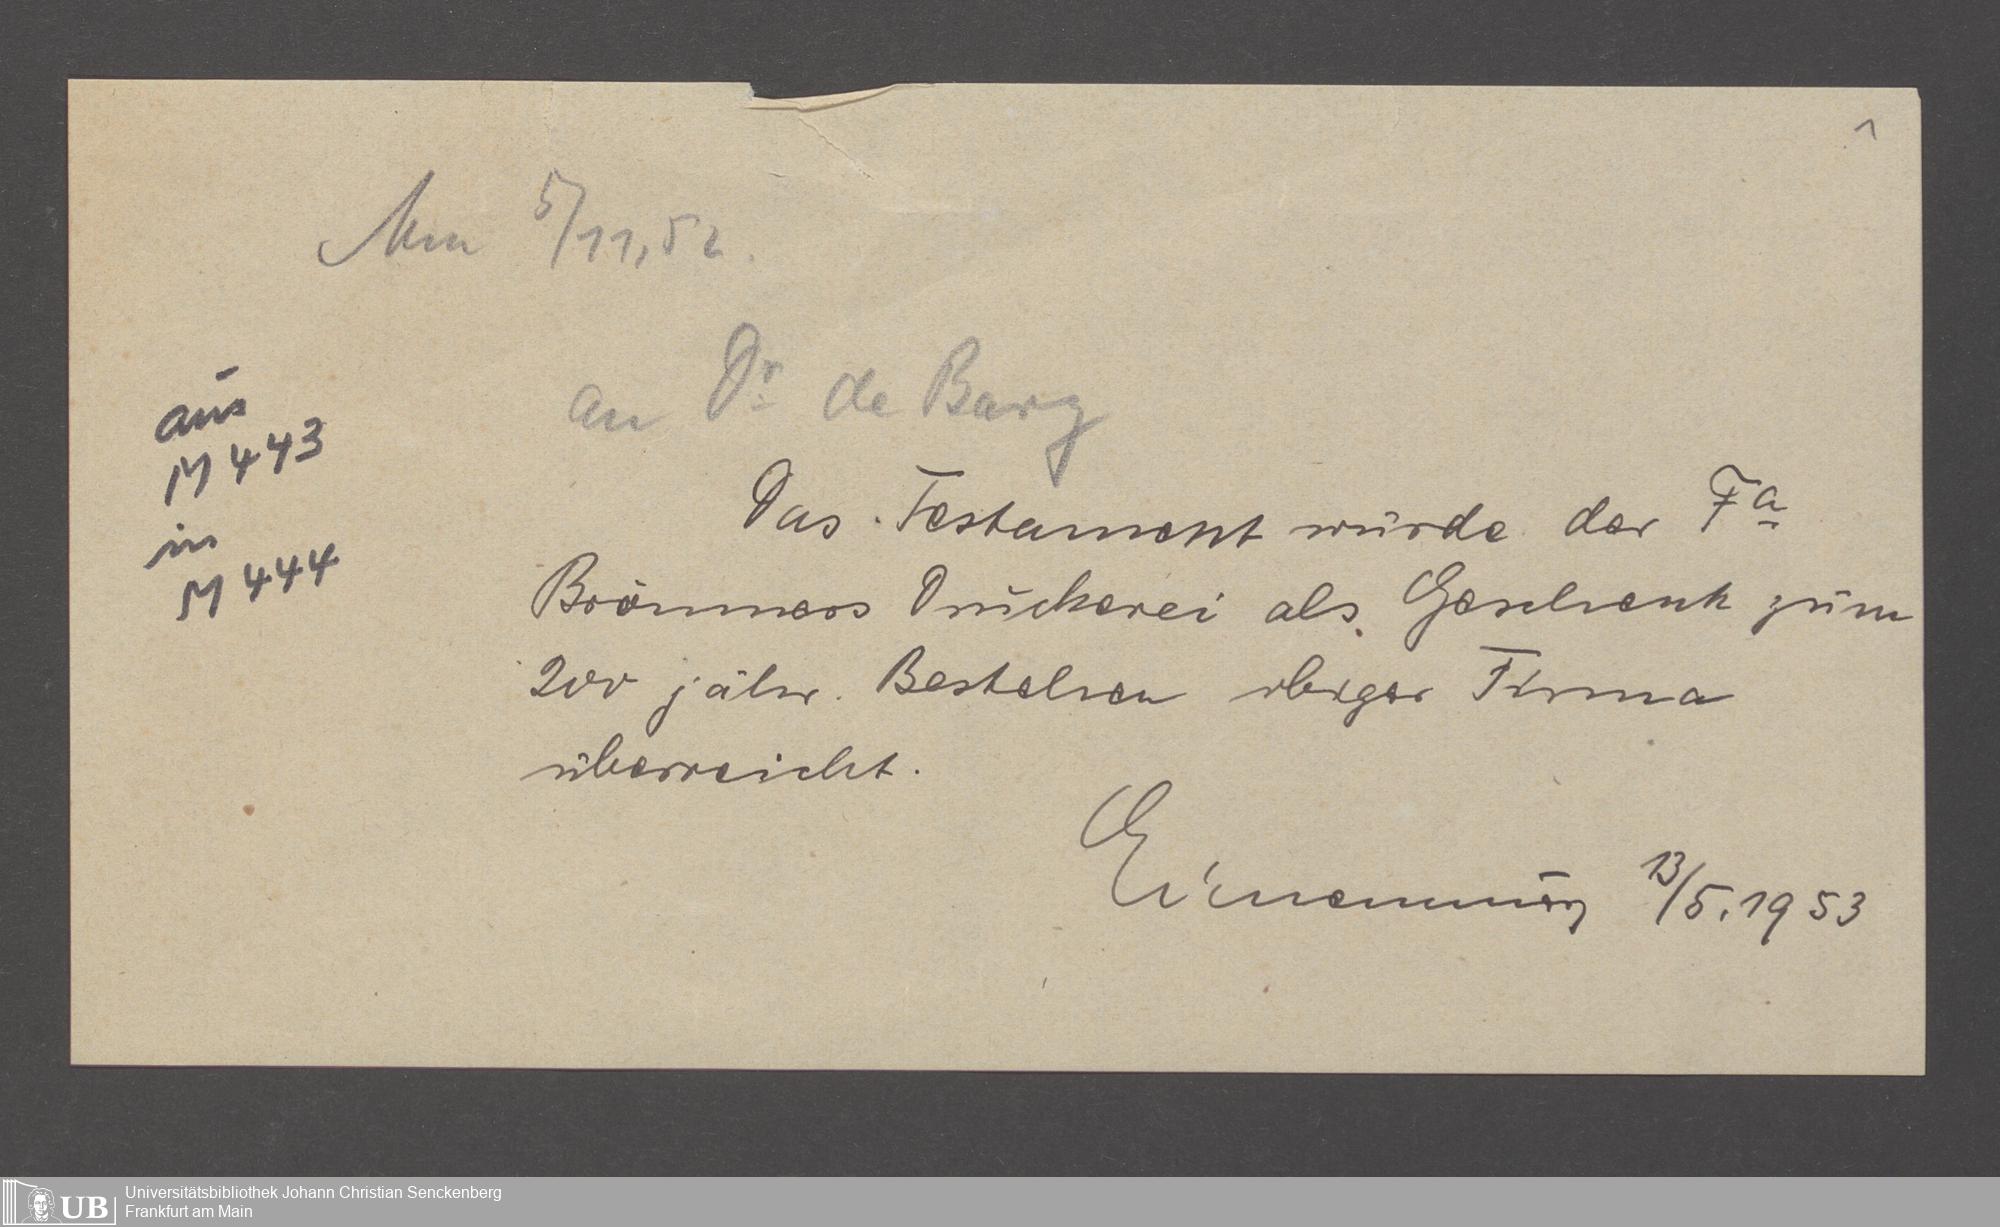 1
5/11,52.
an Dr. de Bary
aus
M 443
in
M 444
Das Testament wurde der Fa
Brönners Druckerei als Geschenk zum
200 jähr. Bestehen obiger Firma
überreicht.
13/5.1953
UB
Universitätsbibliothek Johann Christian Senckenberg
Frankfurt am Main